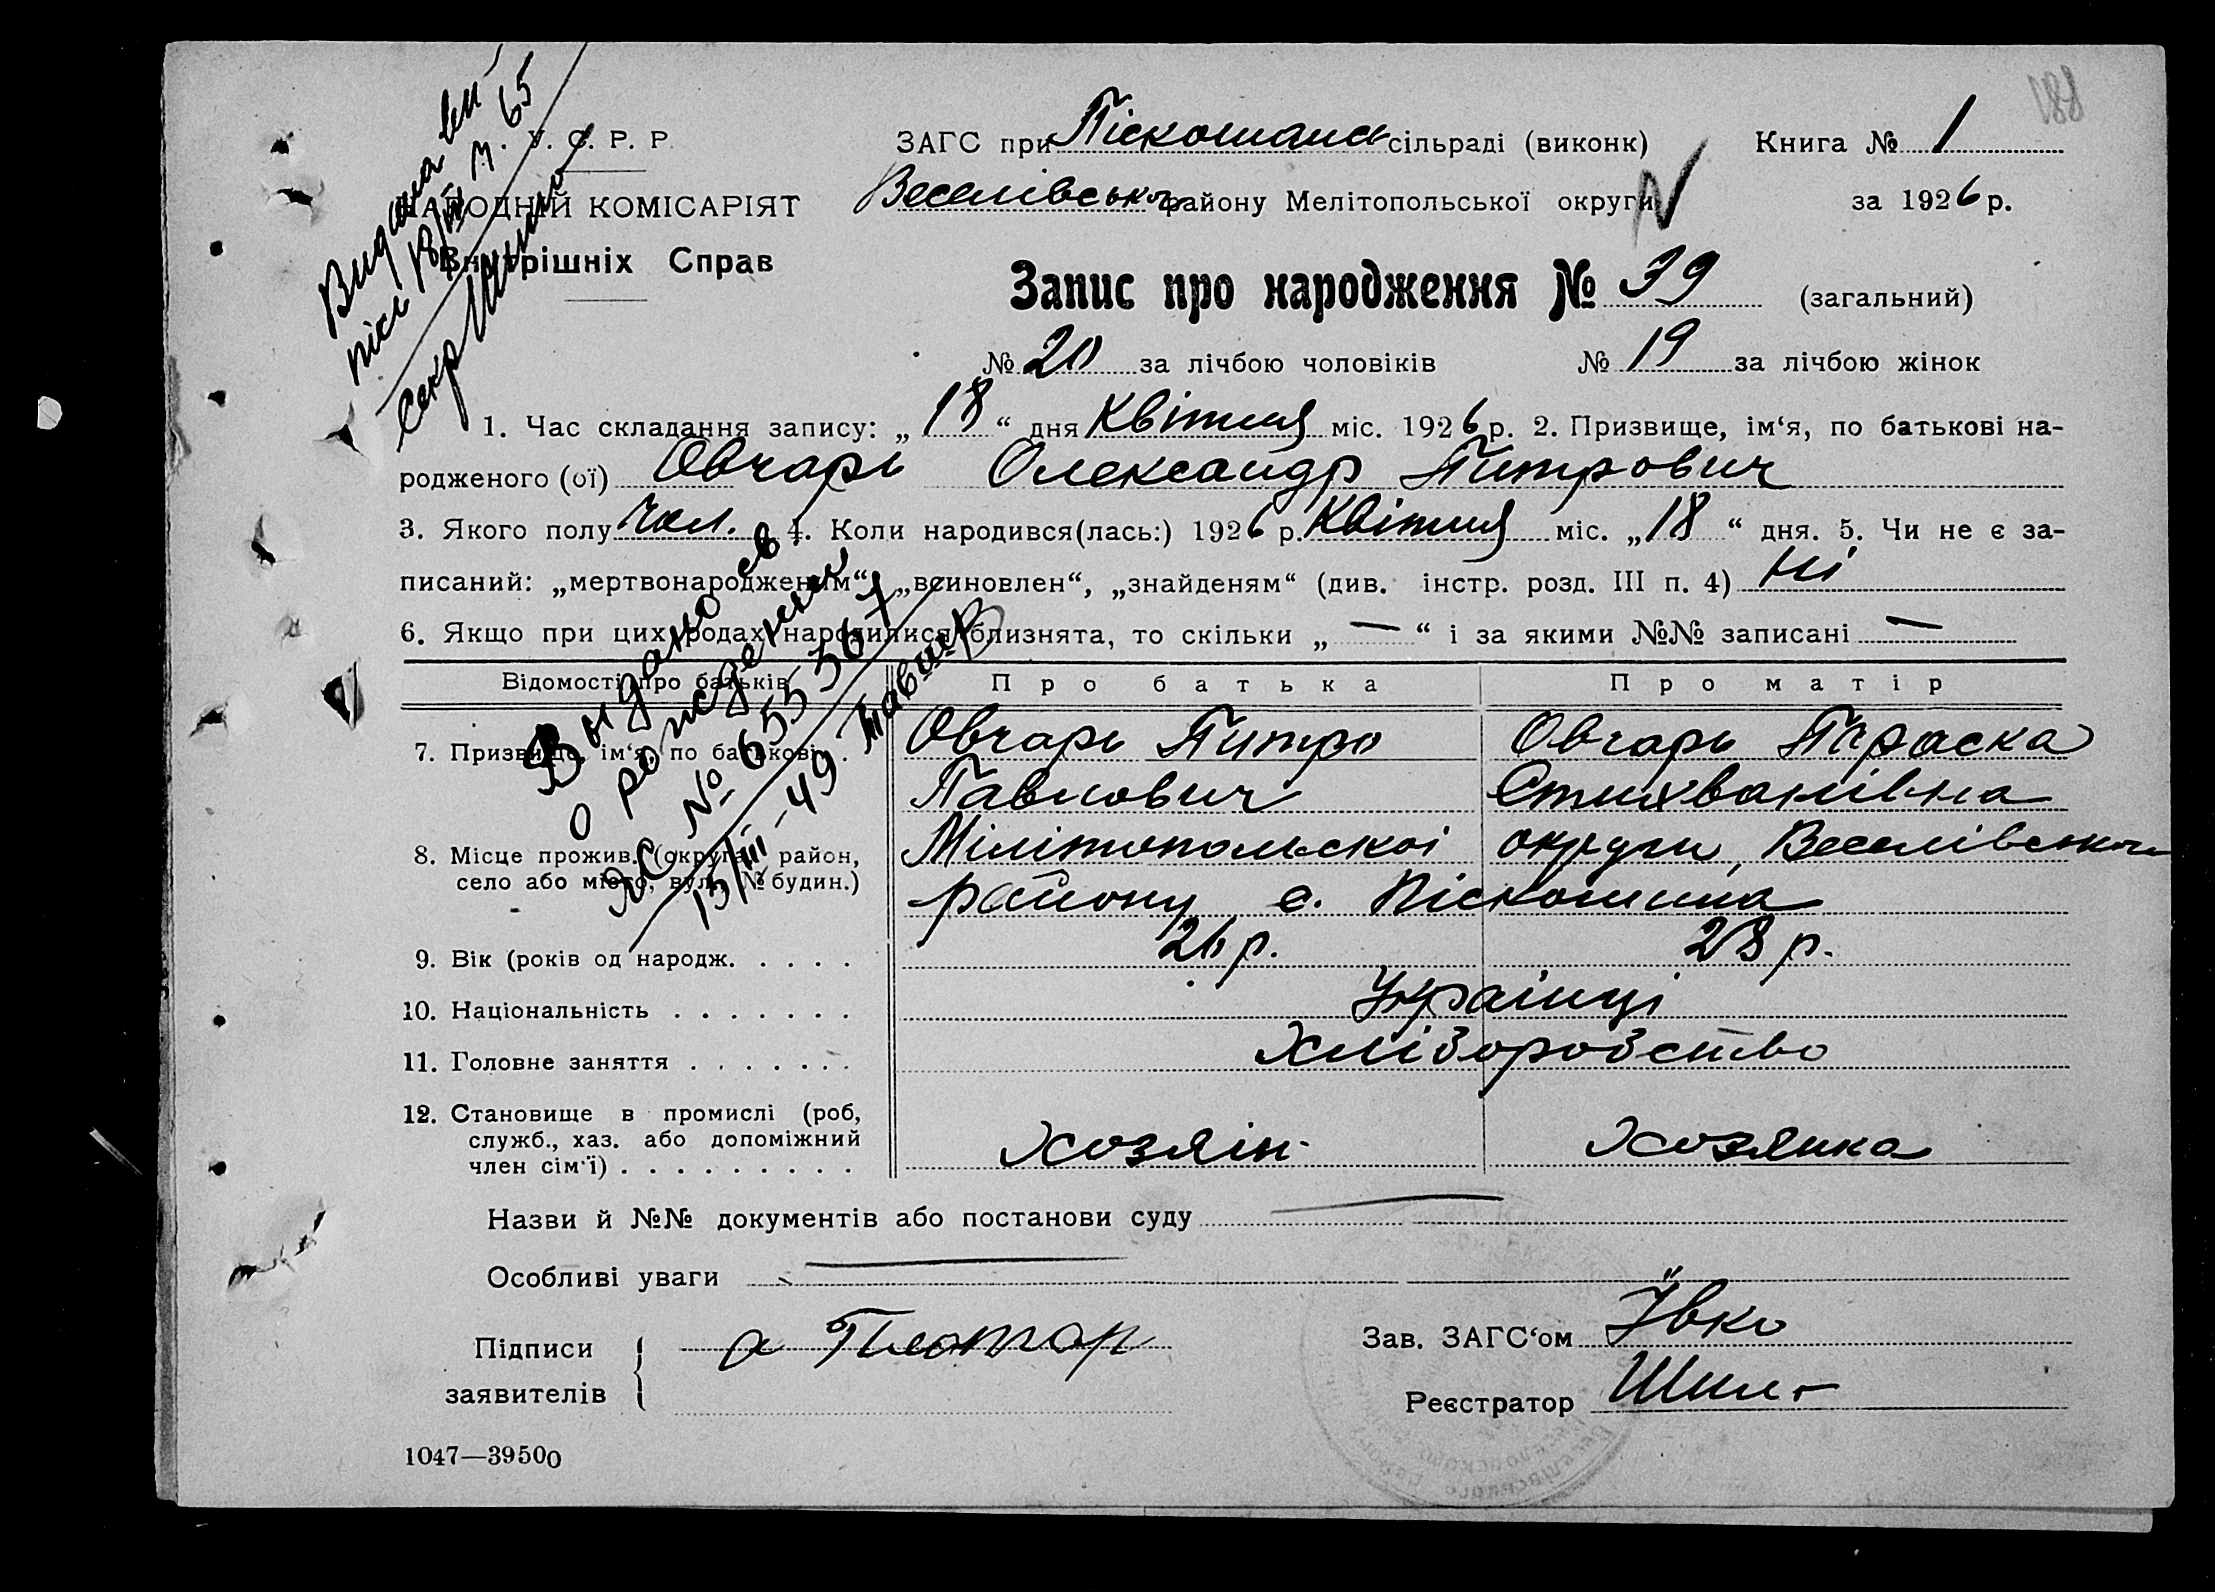 У. С. Р. Р.
НАРОДНІЙ КОМІСАРІЯТ
Внутрішніх Справ
ЗАГС при Піскошинс сільраді (виконк) Книга № 1
Веселівськ району Мелітопольської округи за 1926 р.
Запис про народження № 39 (загальний)
№ 20 за лічбою чоловіків № 19 за лічбою жінок
1. Час складання запису: „18“ дня Квітня міс. 1926 р. 2. Призвище, ім‘я, по батькові на-
родженого (ої) Овчарь Олександр Питрович
3. Якого полу Чол. 4. Коли народився(лась:) 1926 р. Квітня міс. „18“ дня. 5. Чи не є за-
писаний: „мертвонародженим“, „всиновлен“, „знайденям“ (див. інстр. розд. III п. 4) Ні
6. Якщо при цих родах народилися близнята, то скільки „—“ і за якими №№ записані —
Відомості про батьків Про батька Про матір
7. Призвище, ім‘я, по батькові . Овчарь Питро Овчарь Параска
Павлович
8. Місце прожив. (округа, район, Мілітопольскоі округи, Веселівськ
село або місто, вул. № будин.) району с. Піскошина
9. Вік (років од народж. . . . . 26 р. 28 р.
10. Національність . . . . . . . Українці
11. Головне заняття . . . . . . . Хліборобство
12. Становище в промислі (роб,
служб., хаз. або допоміжний
член сім‘ї) . . . . . . . . . Хозяін Хозяика
Назви й №№ документів або постанови суду —
Особливі уваги —
Підписи заявителів
Зав. ЗАГС‘ом
Реєстратор Шило
1047—39500
188
Видана
18/III М. 65
Секр
Выдано св
о рождении
ЯС № 655567
13/III-49